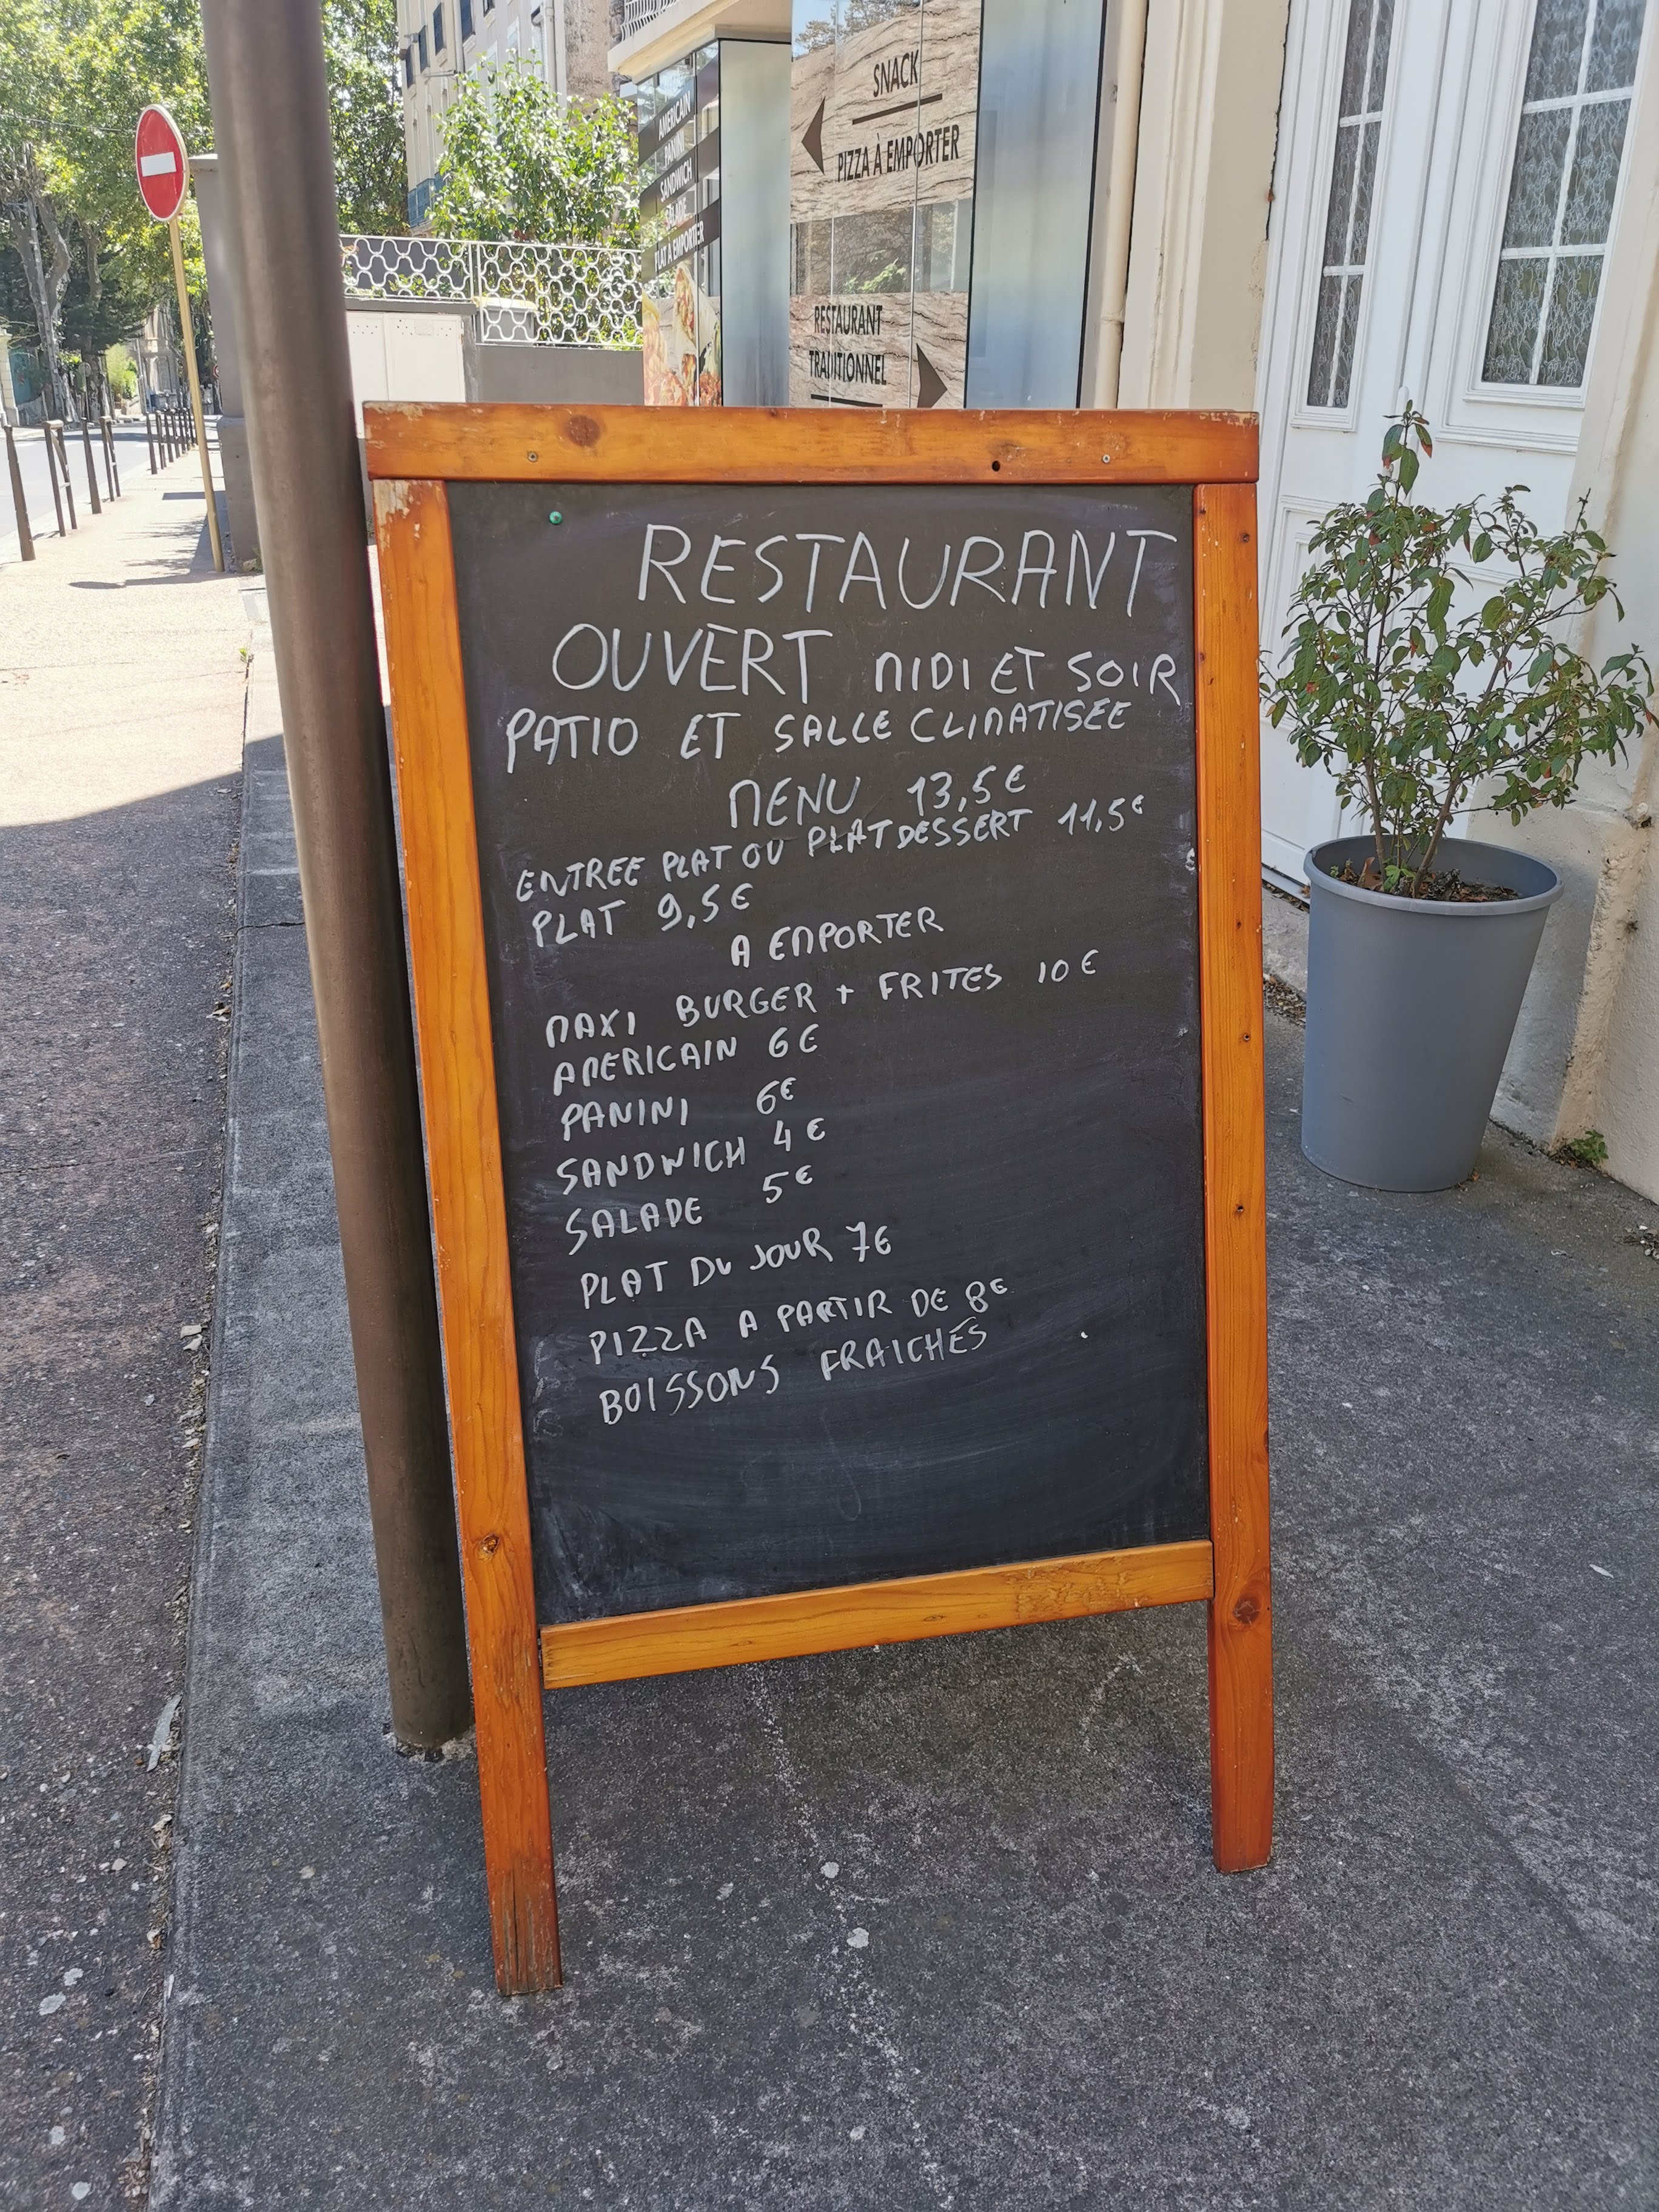 SNACK
PIZZA À EMPORTER
RESTAURANT
TRADITIONNEL
AMERICAIN
PANINI
SANDWICH
SALADE
PLAT A EMPORTER
RESTAURANT
OUVERT MIDI ET SOIR
PATIO ET SALLE CLIMATISEE
MENU 13,5€
ENTREE PLAT OU PLAT DESSERT 11,5€
PLAT 9,5€
A EMPORTER
MAXI BURGER + FRITES 10€
AMERICAIN 6€
PANINI 6€
SANDWICH 4€
SALADE 5€
PLAT DU JOUR 7€
PIZZA A PARTIR DE 8€
BOISSONS FRAICHES